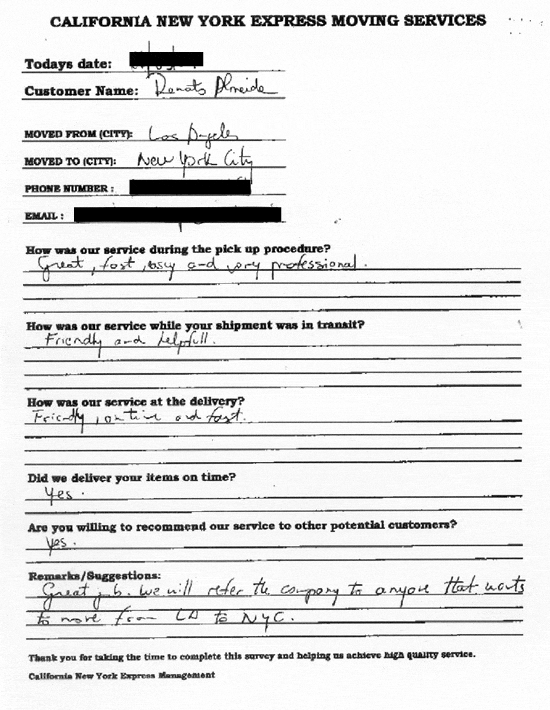 CALIFORNIA NEW YORK EXPRESS MOVING SERVICES
Todays date:
Customer Name: Renato Almeida
MOVED FROM (CITY): Los Angeles
MOVED TO (CITY): New York City
PHONE NUMBER :
EMAIL :
How was our service during the pick up procedure?
Great, fast, easy and very professional.
How was our service while your shipment was in transit?
Friendly and helpfull.
How was our service at the delivery?
Friendly, on time and fast.
Did we deliver your items on time?
Yes.
Are you willing to recommend our service to other potential customers?
Yes.
Remarks/Suggestions:
Great job. We will refer the company to anyone that wants
to move from LA to NYC.
Thank you for taking the time to complete this survey and helping us achieve high quality service.
California New York Express Management